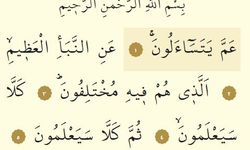 بِسْمِ اللَّهِ الرَّحْمَٰنِ الرَّحِيمِ
عَمَّ يَتَسَاءَلُونَۚ ١ عَنِ النَّبَأِ الْعَظِيمِۙ
٢ الَّذِي هُمْ فِيهِ مُخْتَلِفُونَۜ ٣ كَلَّا
سَيَعْلَمُونَۙ ٤ ثُمَّ كَلَّا سَيَعْلَمُونَ ٥